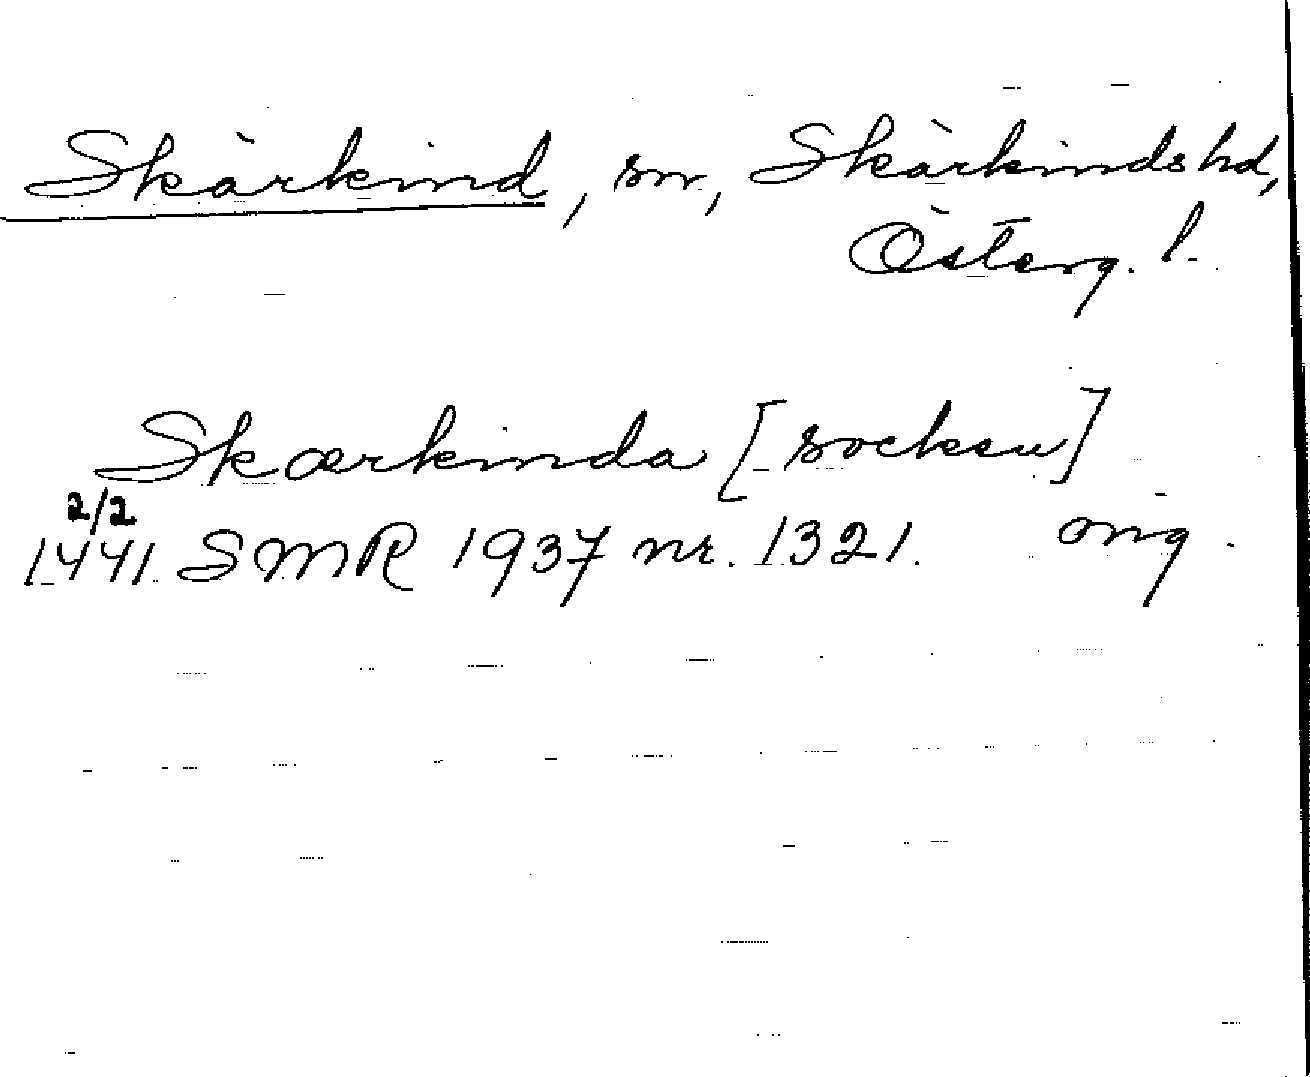 Skärkind, sn, Skärkinds hd,
Österg. l.
Skærkinda [socken]
2/2
1441 SMR 1937 nr. 1321. ong.